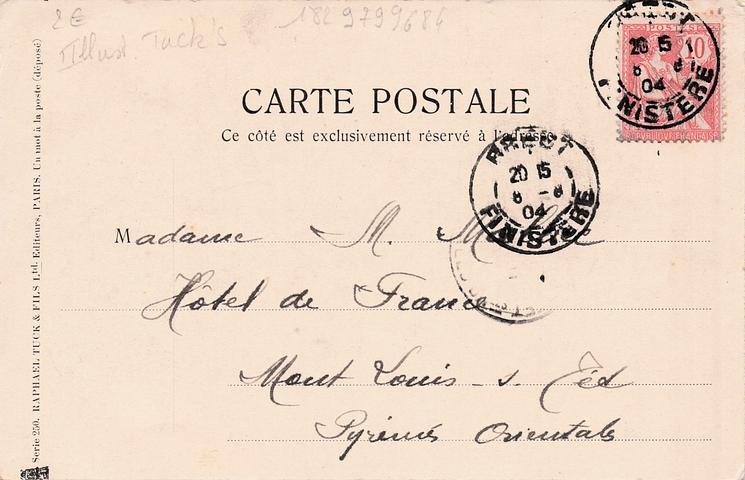 2€
Illust. Tuck's
1829799686
CARTE POSTALE
Ce côté est exclusivement réservé à l'adresse
POSTES
10
RÉPUBLIQUE FRANÇAISE
BREST
20 15
8 - 8
04
FINISTÈRE
BREST
20 15
8 - 8
04
FINISTÈRE
Madame M.
Hôtel de France
Mont Louis - s.
Pyrénées Orientales
Serie 250. RAPHAEL TUCK & FILS Ltd Editeurs, PARIS. Un mot à la poste (déposé)